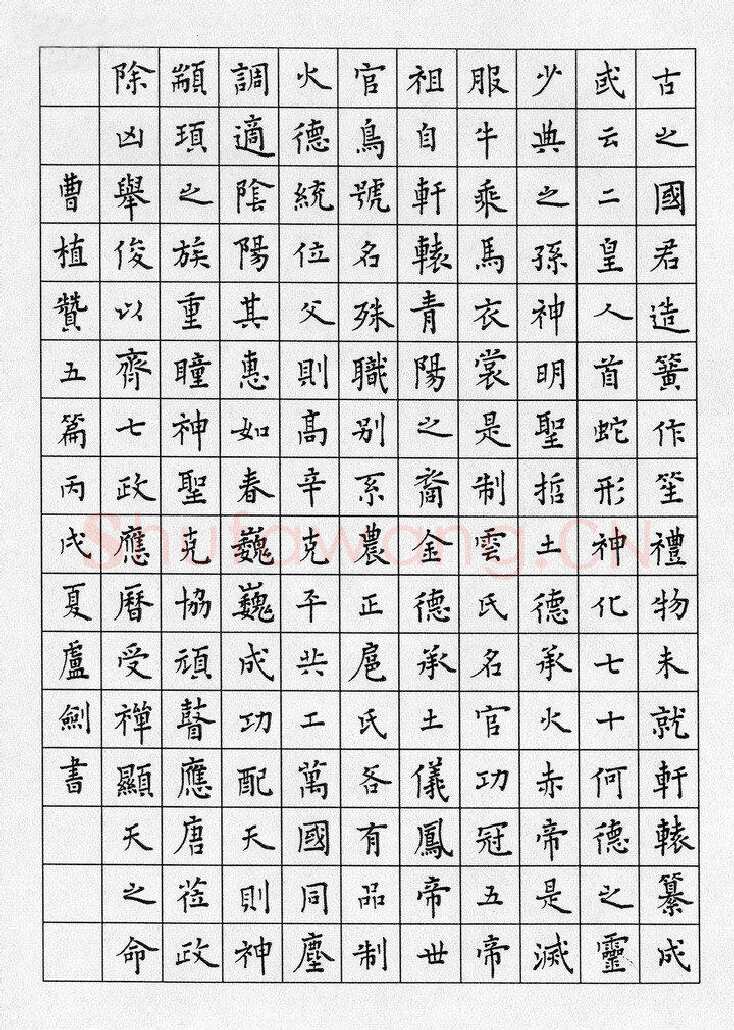 古之國君造簧作笙禮物未就軒轅纂成
或云二皇人首蛇形神化七十何德之靈
少典之孫神明聖哲土德承火赤帝是滅
服牛乘馬衣裳是制雲氏名官功冠五帝
祖自軒轅青陽之裔金德承土儀鳳帝世
官鳥號名殊職别系農正扈氏各有品制
火德統位父則高辛克平共工萬國同塵
調適陰陽其惠如春巍巍成功配天則神
顓頊之族重瞳神聖克協頑瞽應唐莅政
除凶舉俊以齊七政應曆受禪顯天之命
曹植贊五篇丙戌夏盧劍書
Shufawang.CN